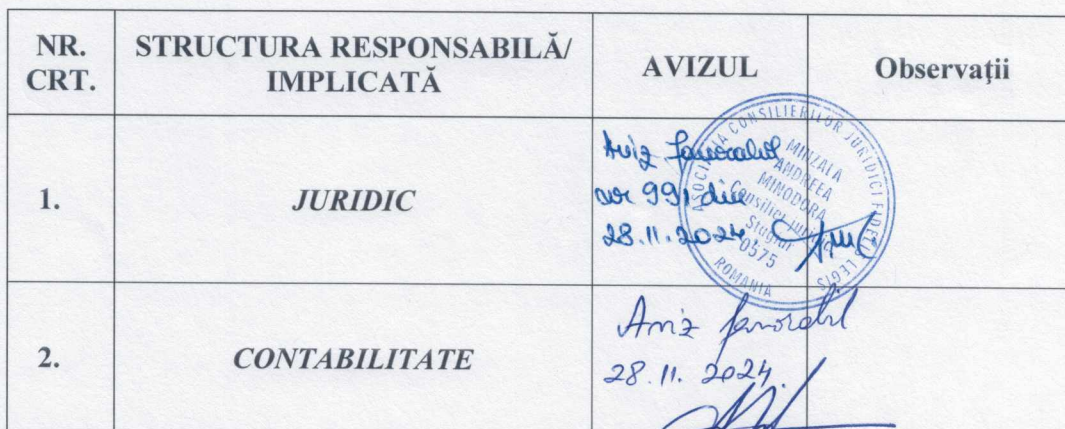 NR. CRT.
STRUCTURA RESPONSABILĂ/ IMPLICATĂ
AVIZUL
Observaţii
1.
JURIDIC
Aviz favorabil
nr 991 din
28.11.2024.
ASOCIAŢIA CONSILIERILOR JURIDICI FIDELIS LEGIS
MINZALA
ANDREEA
MINODORA
Consilier juridic
Stagiar
0575
ROMANIA
2.
CONTABILITATE
Aviz favorabil
28.11.2024.